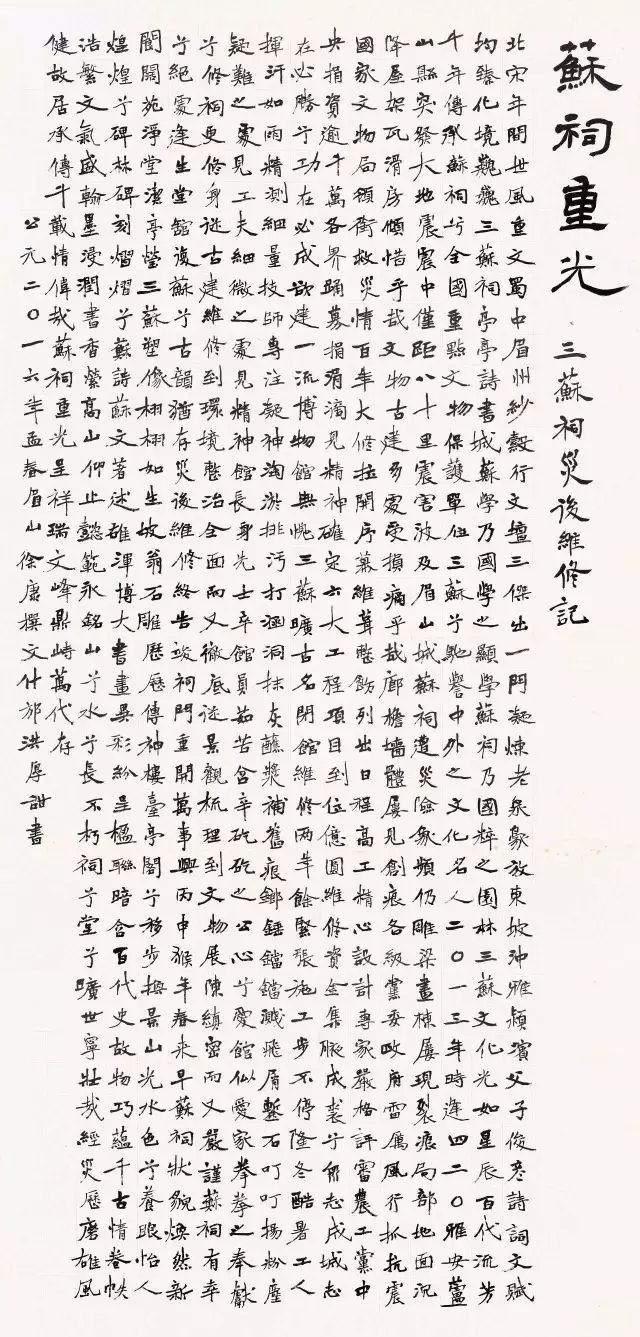 蘇祠重光·三蘇祠災後維修記
北宋年間世風重文蜀中眉州紗縠行文壇三傑出一門凝煉老泉豪放東坡沖雅潁濱父子俊彥詩詞文賦
均臻化境巍巍三蘇祠亭亭詩書城蘇學乃國學之顯學蘇祠乃國粹之園林三蘇文化光如星辰百代流芳
千年傳承蘇祠兮全國重點文物保護單位三蘇兮馳譽中外之文化名人二〇一三年時逢四二〇雅安蘆
山縣突發大地震震中僅距八十里震害波及眉山城蘇祠遭災險象頻仍雕梁畫棟屢現裂痕局部地面沉
降屋架瓦滑房傾惜乎哉文物古建多處受損痛乎哉廊檐墻體屢見創痕各級黨委政府雷厲風行抓抗震
國家文物局領銜救災情百年大修拉開序幕維葺整飭列出日程高工精心設計專家嚴格評審農工黨中
央捐資逾千萬各界踴躍募捐涓滴見精神確定六大工程項目到位億圓維修資金集腋成裘兮眾志成城志
在必勝兮功在必成欲建一流博物館無愧三蘇曠古名閉館維修兩年餘緊張施工步不停隆冬酷暑工人
揮汗如雨精測細量技師專注凝神淘淤排污打涵洞抹灰蘸漿補舊痕鎯錘鐺鐺濺飛屑鏨石叮叮揚粉塵
疑難之處見工夫細微之處見精神館長身先士卒館員茹苦含辛矻矻之公心兮愛館似愛家拳拳之奉獻
兮修祠更修身從古建維修到環境整治全面而又徹底從景觀梳理到文物展陳縝密而又嚴謹蘇祠有幸
兮絕處逢生堂館復蘇兮古韻猶存災後維修終告竣祠門重開萬事興丙申猴年春來早蘇祠狀貌煥然新
閶闔苑淨堂潔亭瑩三蘇塑像栩栩如生坡翁石雕歷歷傳神樓臺亭閣兮移步換景山光水色兮養眼怡人
煌煌兮碑林碑刻熠熠兮蘇詩蘇文著述雄渾博大書畫異彩紛呈楹聯暗含百代史故物巧蘊千古情卷帙
浩繁文氣盛翰墨浸潤書香縈高山仰止懿範永銘山兮水兮長不朽祠兮堂兮曠世寧壯哉經災歷磨雄風
健故居承傳千載情偉哉蘇祠重光呈祥瑞文峰鼎峙萬代存
公元二〇一六年孟春眉山徐康撰文什邡洪厚甜書